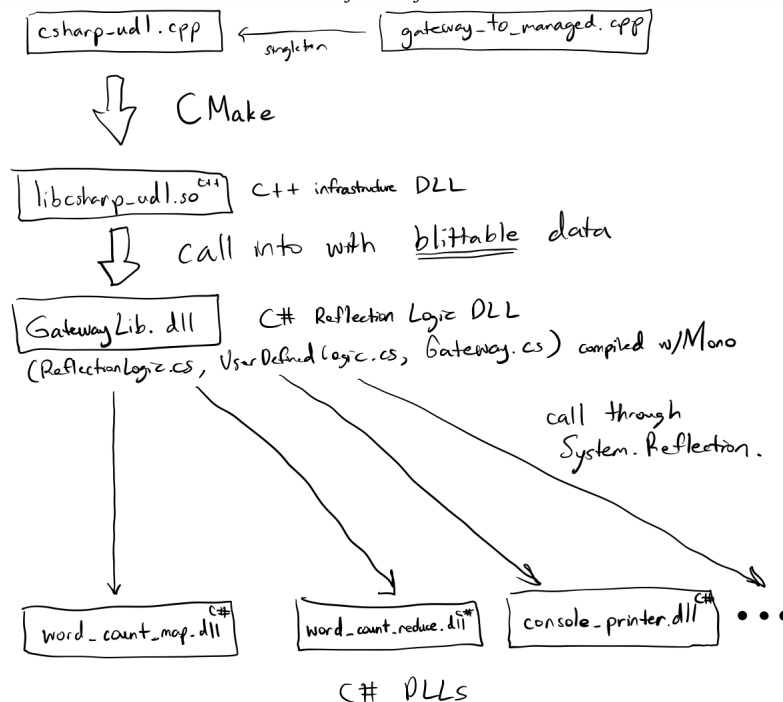 csharp-udl.cpp
singleton
gateway_to_managed.cpp
CMake
libcsharp-udl.so C++
C++ infrastructure DLL
call into with blittable data
GatewayLib.dll
C# Reflection Logic DLL
(ReflectionLogic.cs, UserDefinedLogic.cs, Gateway.cs) compiled w/Mono
call through
System.Reflection.
word_count_map.dll C#
word_count_reduce.dll C#
console_printer.dll C#
...
C# DLLs